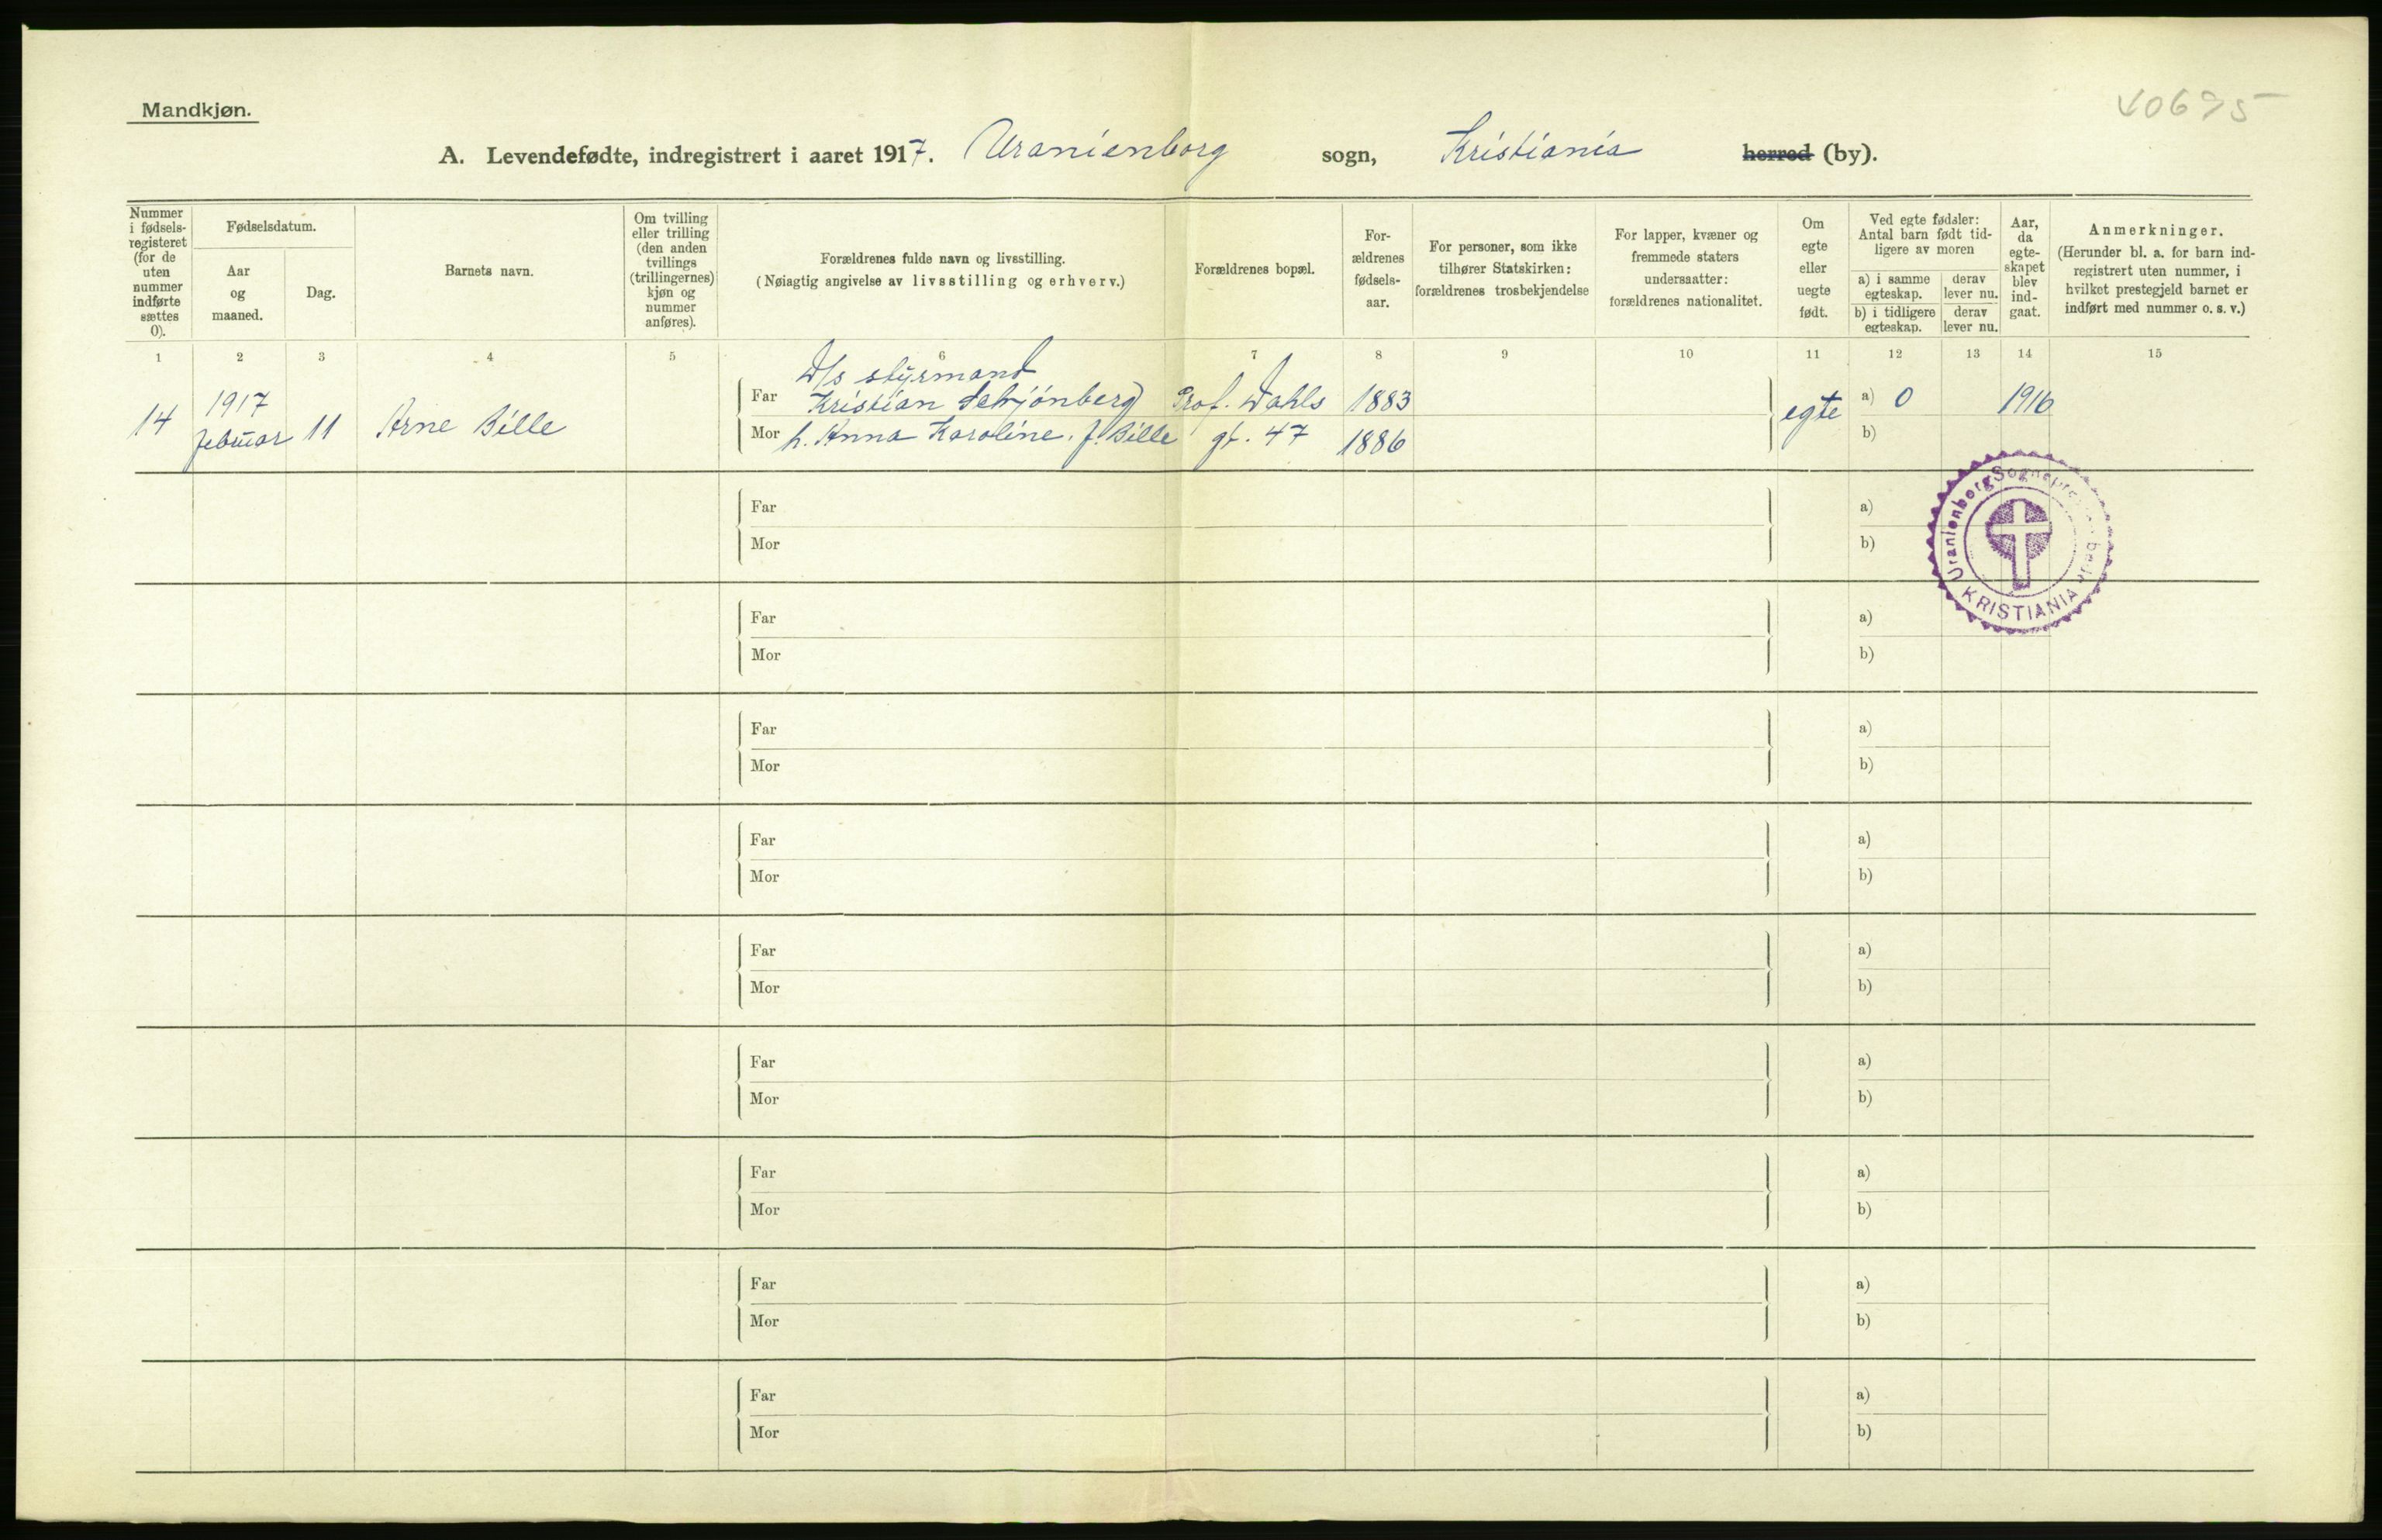 Mandkjøn.
40695
A. Levendefødte, indregistrert i aaret 1917. Uranienborg sogn, Kristiania herred (by).
Nummer i fødsels-registeret (for de uten nummer indførte sættes 0).
Fødselsdatum.
Aar og maaned.
Dag.
Barnets navn.
Om tvilling eller trilling (den anden tvillings (trillingernes) kjøn og nummer anføres).
Forældrenes fulde navn og livsstilling.
(Nøiagtig angivelse av livsstilling og erhverv.)
Forældrenes bopæl.
For-ældrenes fødsels-aar.
For personer, som ikke tilhører Statskirken: forældrenes trosbekjendelse
For lapper, kvæner og fremmede staters undersaatter: forældrenes nationalitet.
Om egte eller uegte født.
Ved egte fødsler: Antal barn født tid-ligere av moren
a) i samme egteskap.
derav lever nu.
b) i tidligere egteskap.
derav lever nu.
Aar, da egte-skapet blev ind-gaat.
Anmerkninger.
(Herunder bl. a. for barn ind-registrert uten nummer, i hvilket prestegjeld barnet er indført med nummer o. s. v.)
1 2 3 4 5 6 7 8 9 10 11 12 13 14 15
D/s styrmand
14 1917 februar 11 Arne Bille
Far Kristian Schjønberg Prof. Dahls 1883 egte a) 0 1916
Mor h. Anna Karoline f. Bille gt. 47 1886 b)
Uranienborg Sognepr
KRISTIANIA
Far a)
Mor b)
Far a)
Mor b)
Far a)
Mor b)
Far a)
Mor b)
Far a)
Mor b)
Far a)
Mor b)
Far a)
Mor b)
Far a)
Mor b)
Far a)
Mor b)